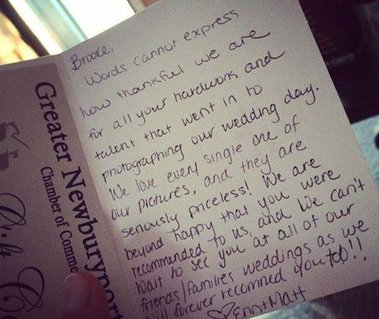 Brooke,
Words cannot express
how thankful we are
for all your hardwork and
talent that went in to
photographing our wedding day.
We love every single one of
our pictures, and they are
seriously priceless! We are
beyond happy that you were
recommended to us, and we can't
wait to see you at all of our
friends/families weddings as we
will forever recommend you to!!
♡Jenn+Matt
Greater Newburyport
Chamber of Comme